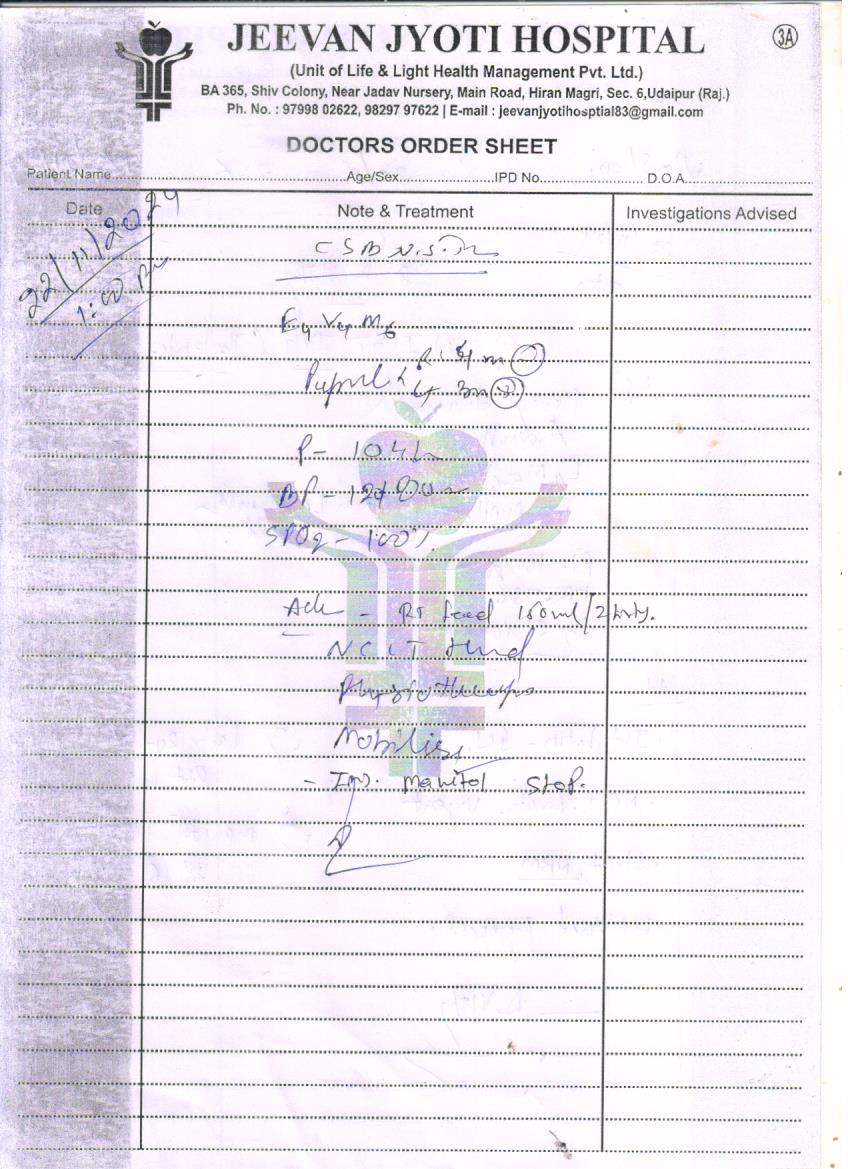 3A
JEEVAN JYOTI HOSPITAL
(Unit of Life & Light Health Management Pvt. Ltd.)
BA 365, Shiv Colony, Near Jadav Nursery, Main Road, Hiran Magri, Sec. 6,Udaipur (Raj.)
Ph. No. : 97998 02622, 98297 97622 | E-mail : jeevanjyotihosptial83@gmail.com
DOCTORS ORDER SHEET
Patient Name Age/Sex IPD No. D.O.A.
Date Note & Treatment Investigations Advised
22/11/2024
1:00 pm
E4 V4 M6
Pupil
P- 104
BP-
SPO2 - 100%
Adv - RT feed 150ml/2 hrly.
NCCT Head
Physiotherapy
Mobilise
- Inj. Manitol Stop.